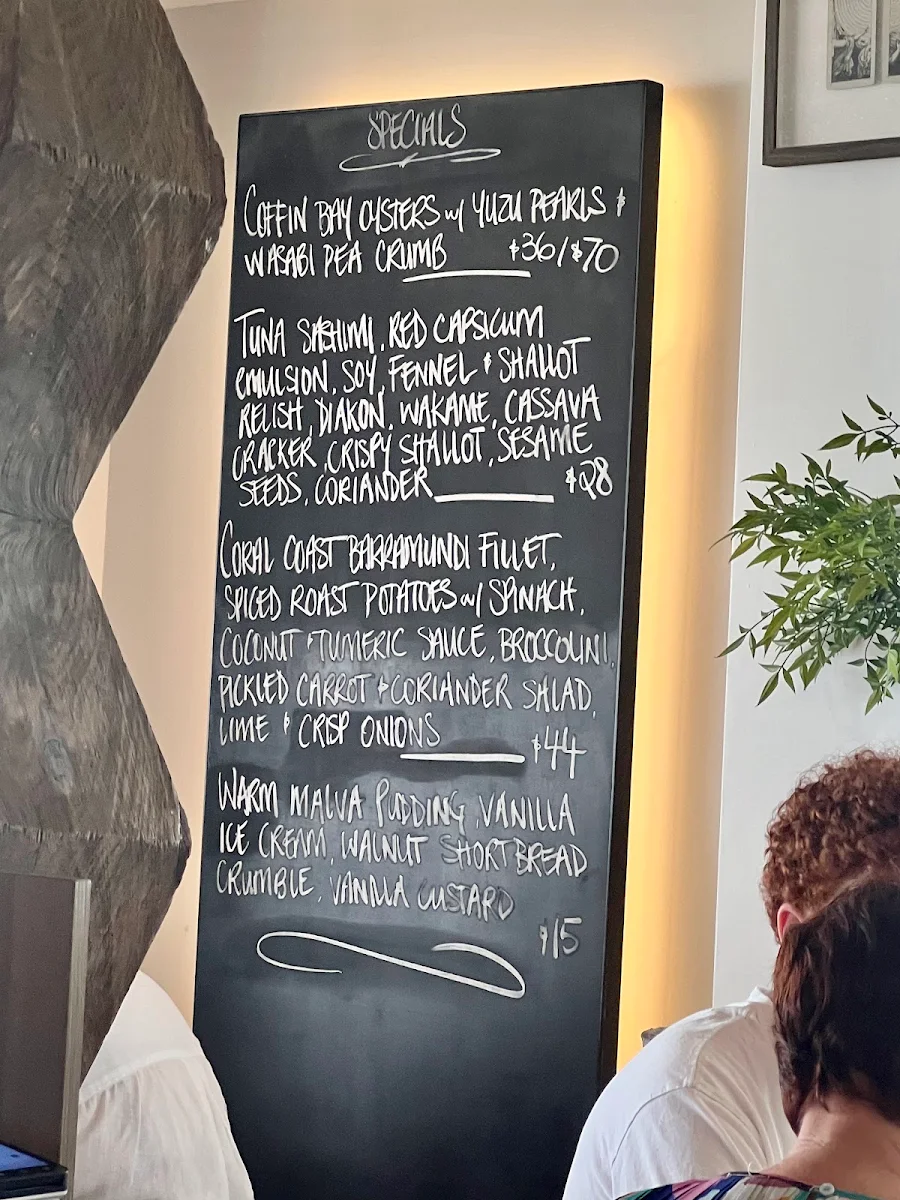 SPECIALS
COFFIN BAY OYSTERS w/ YUZU PEARLS &
WASABI PEA CRUMB $36/$70
TUNA SASHIMI, RED CAPSICUM
EMULSION, SOY, FENNEL & SHALLOT
RELISH, DIAKON, WAKAME, CASSAVA
CRACKER, CRISPY SHALLOT, SESAME
SEEDS, CORIANDER $28
CORAL COAST BARRAMUNDI FILLET,
SPICED ROAST POTATOES w/ SPINACH,
COCONUT & TUMERIC SAUCE, BROCCOLINI,
PICKLED CARROT & CORIANDER SALAD,
LIME & CRISP ONIONS $44
WARM MALVA PUDDING, VANILLA
ICE CREAM, WALNUT SHORTBREAD
CRUMBLE, VANILLA CUSTARD
$15